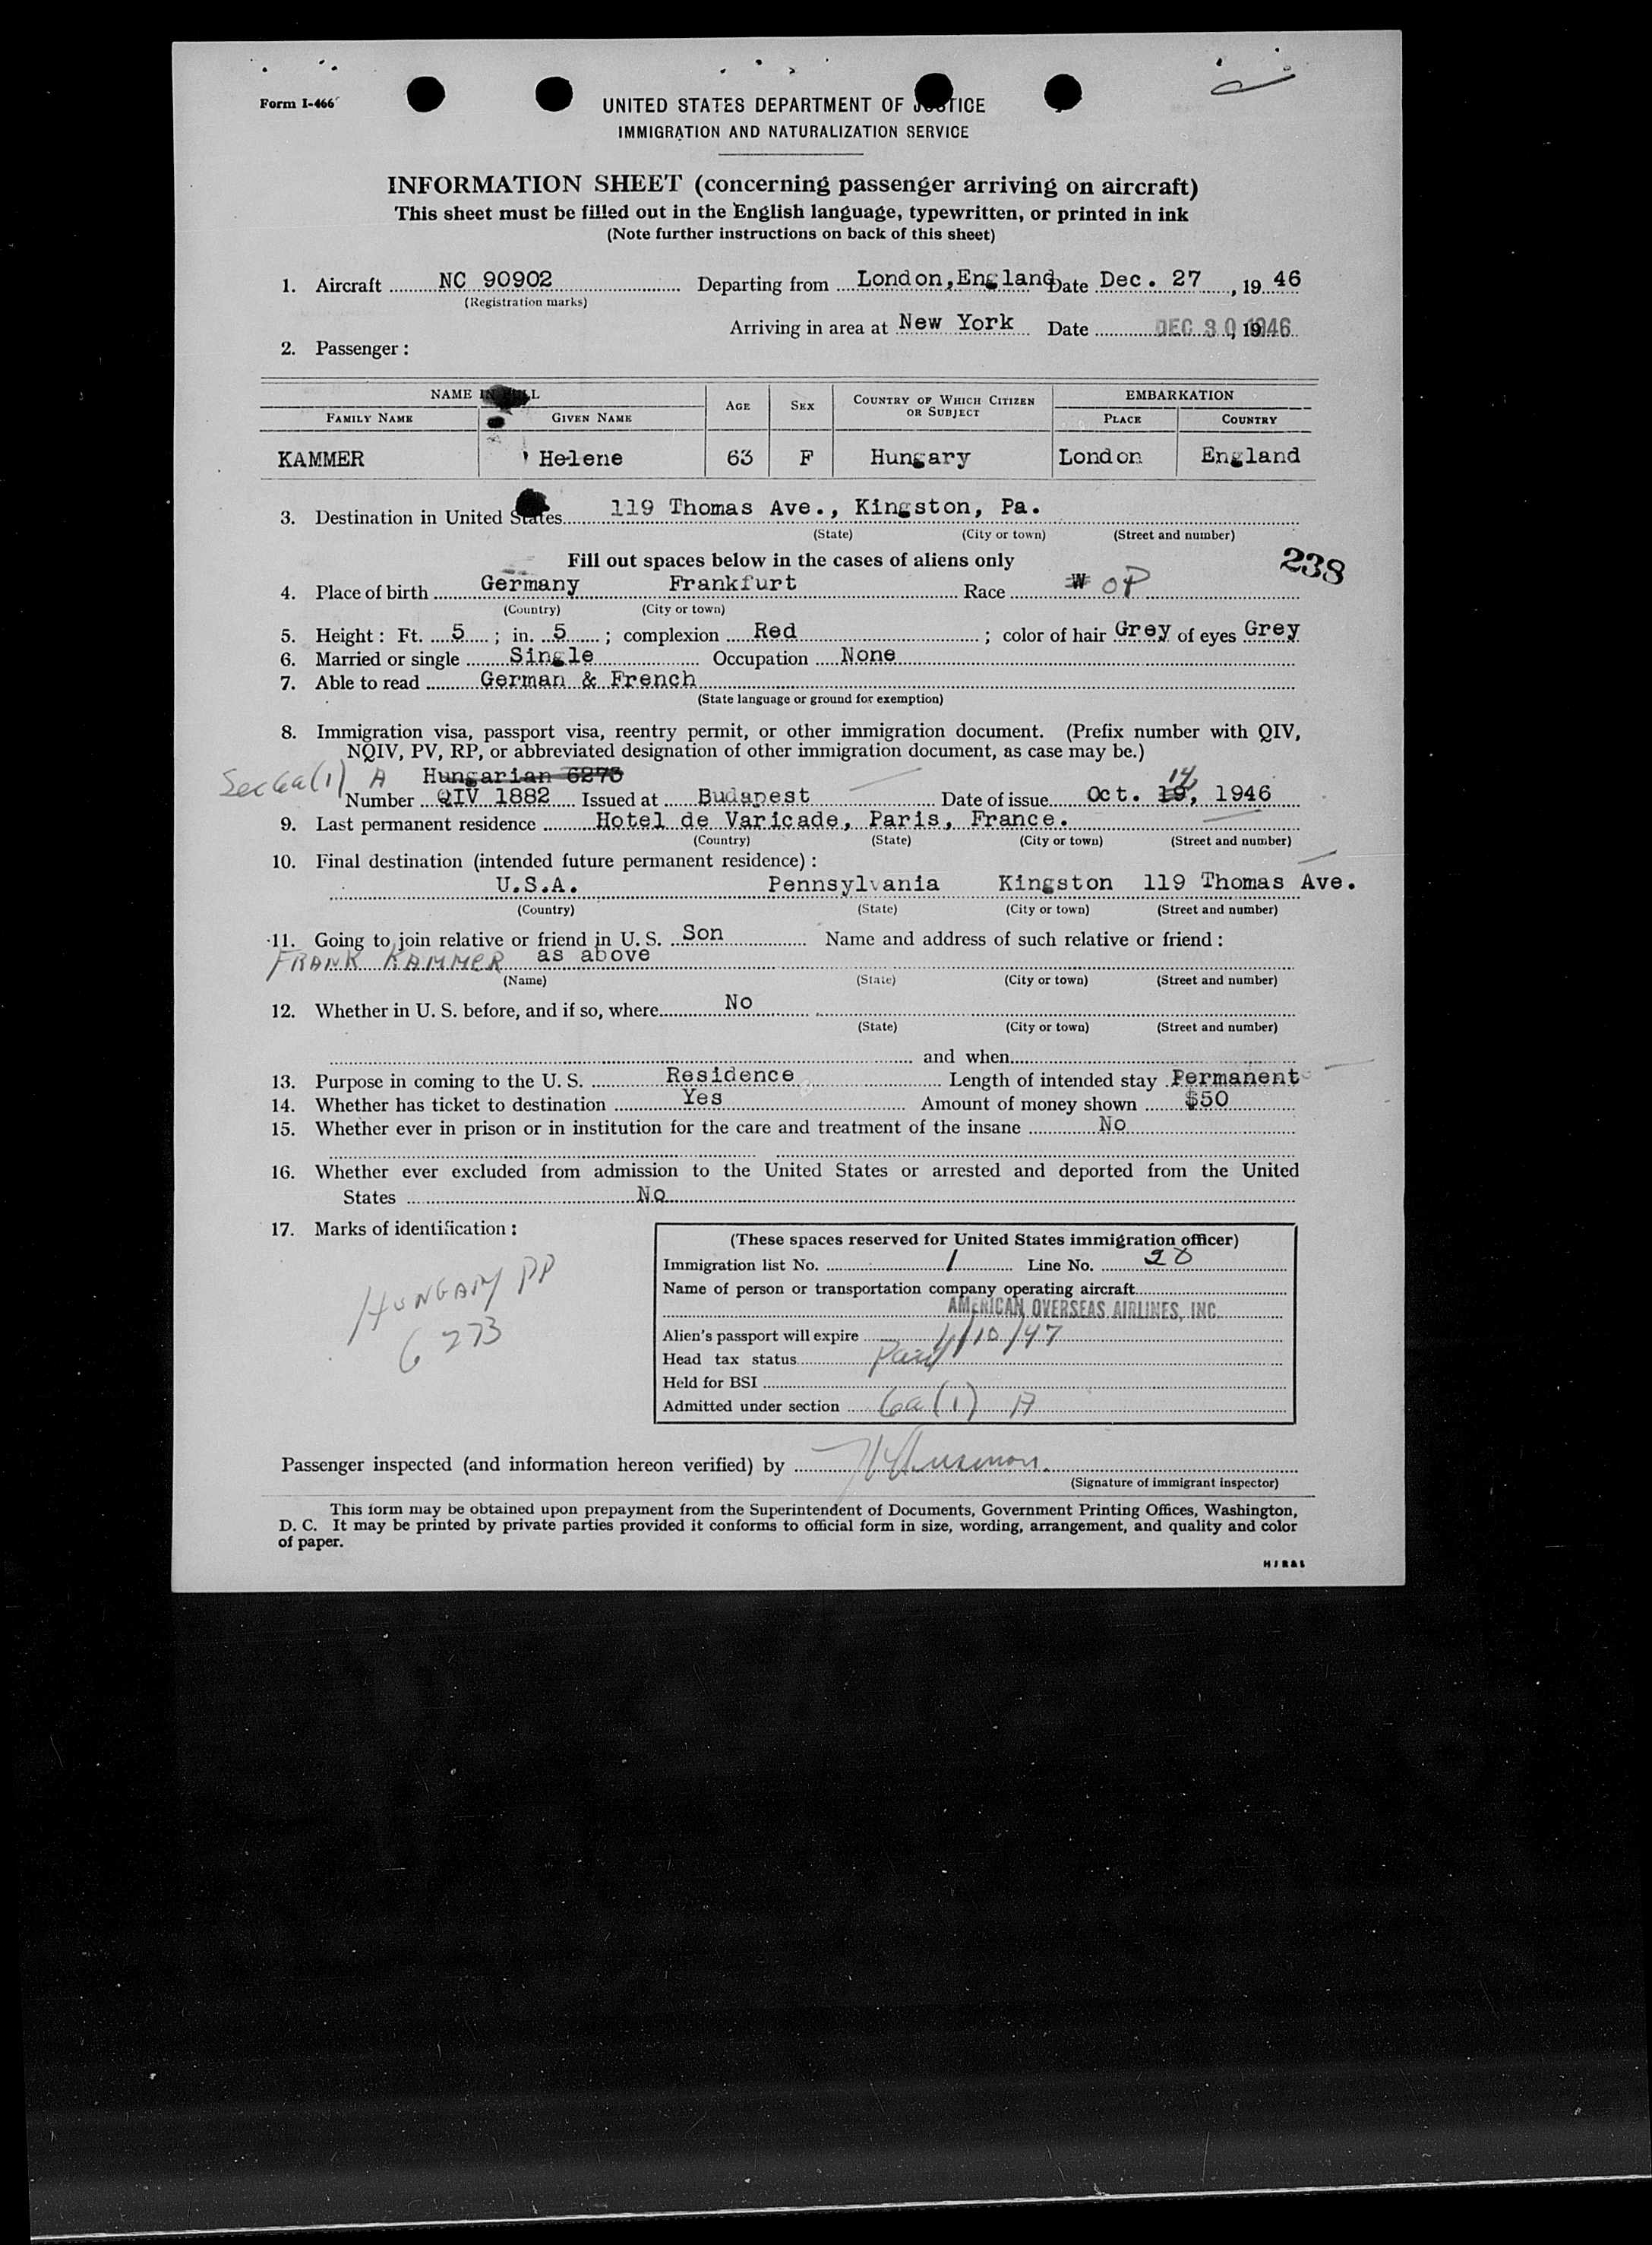 Form I-466
UNITED STATES DEPARTMENT OF JUSTICE
IMMIGRATION AND NATURALIZATION SERVICE
INFORMATION SHEET (concerning passenger arriving on aircraft)
This sheet must be filled out in the English language, typewritten, or printed in ink
(Note further instructions on back of this sheet)
1. Aircraft NC 90902 Departing from London, England Date Dec. 27, 19 46
(Registration marks)
Arriving in area at New York Date DEC 30, 1946
2. Passenger:
NAME IN FULL AGE SEX COUNTRY OF WHICH CITIZEN OR SUBJECT EMBARKATION
FAMILY NAME GIVEN NAME PLACE COUNTRY
KAMMER Helene 63 F Hungary London England
3. Destination in United States 119 Thomas Ave., Kingston, Pa.
(State) (City or town) (Street and number)
Fill out spaces below in the cases of aliens only
238
4. Place of birth Germany Frankfurt Race W OP
(Country) (City or town)
5. Height: Ft. 5; in. 5; complexion Red; color of hair Grey of eyes Grey
6. Married or single Single Occupation None
7. Able to read German & French
(State language or ground for exemption)
8. Immigration visa, passport visa, reentry permit, or other immigration document. (Prefix number with QIV,
NQIV, PV, RP, or abbreviated designation of other immigration document, as case may be.)
Sec 6a(1) A Hungarian 6273
14
Number QIV 1882 Issued at Budapest Date of issue Oct. 19, 1946
9. Last permanent residence Hotel de Varicade, Paris, France.
(Country) (State) (City or town) (Street and number)
10. Final destination (intended future permanent residence):
U.S.A. Pennsylvania Kingston 119 Thomas Ave.
(Country) (State) (City or town) (Street and number)
11. Going to join relative or friend in U. S. Son Name and address of such relative or friend:
FRANK KAMMER as above
(Name) (State) (City or town) (Street and number)
12. Whether in U. S. before, and if so, where No
(State) (City or town) (Street and number)
and when
13. Purpose in coming to the U. S. Residence Length of intended stay Permanent
14. Whether has ticket to destination Yes Amount of money shown $50
15. Whether ever in prison or in institution for the care and treatment of the insane No
16. Whether ever excluded from admission to the United States or arrested and deported from the United
States No
17. Marks of identification:
HUNGARY PP
6273
(These spaces reserved for United States immigration officer)
Immigration list No. 1 Line No. 28
Name of person or transportation company operating aircraft
AMERICAN OVERSEAS AIRLINES, INC.
Alien's passport will expire 1/10/47
Head tax status Paid
Held for BSI
Admitted under section 6a(1) A
Passenger inspected (and information hereon verified) by
(Signature of immigrant inspector)
This form may be obtained upon prepayment from the Superintendent of Documents, Government Printing Offices, Washington,
D. C. It may be printed by private parties provided it conforms to official form in size, wording, arrangement, and quality and color
of paper.